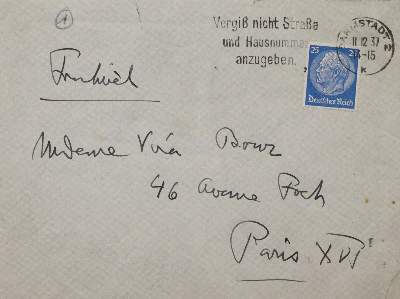 1
Vergiß nicht Straße
und Hausnummer
anzugeben.
DARMSTADT 2
11.12.37
24-15
K
25
Deutsches Reich
Frankreich
Madame Vira
46 Avenue Foch
Paris XVIe